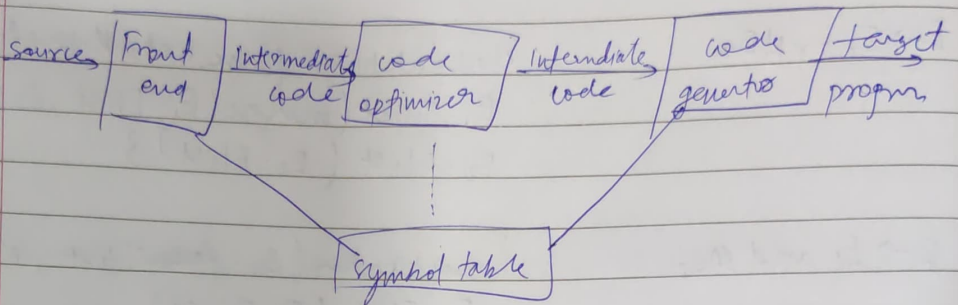 source
Front
end
Intermediate
code
code
optimizer
Interndiate
code
code
genertor
target
progrm
symbol table